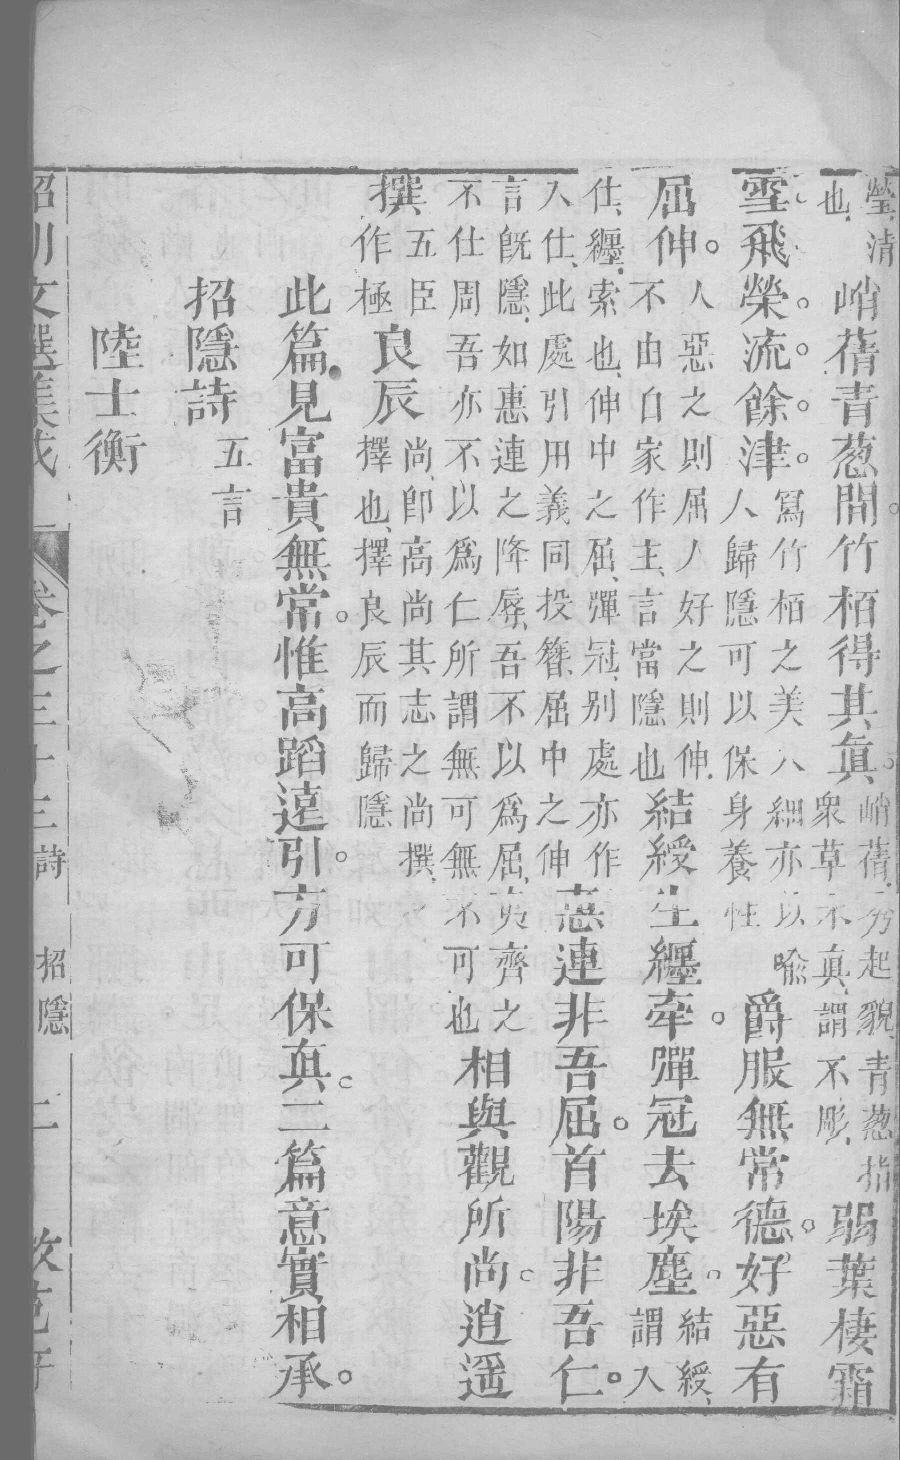 瑩、清也、峭蒨青葱間。竹栢得其眞。峭蒨、秀起貌、青葱、指衆草木、眞、謂不彫、弱葉棲霜
雪。飛榮流餘津。寫竹栢之美八細亦以喻人歸隱可以保身養性爵服無常德。好惡有
屈伸。人惡之則屈人好之則伸、不由自家作主、言當隱也結綬生纒牽。彈冠去埃塵。結綬、謂入
仕、纒、索也、伸中之屈、彈冠、别處亦作入仕、此處引用義同投簪、屈中之伸惠連非吾屈。首陽非吾仁。
言旣隱、如惠連之降辱、吾不以爲屈、夷齊之不仕周吾亦不以爲仁所謂無可無不可也相與觀所尚。逍遥
撰五臣作極良辰尚、卽高尚其志之尚、撰、擇也、擇良辰而歸隱
此篇見富貴無常。惟高蹈遠引。方可保眞。二篇意實相承。
招隱詩五言
陸士衡
昭明文選集成 卷之三十三 詩 招隱 二